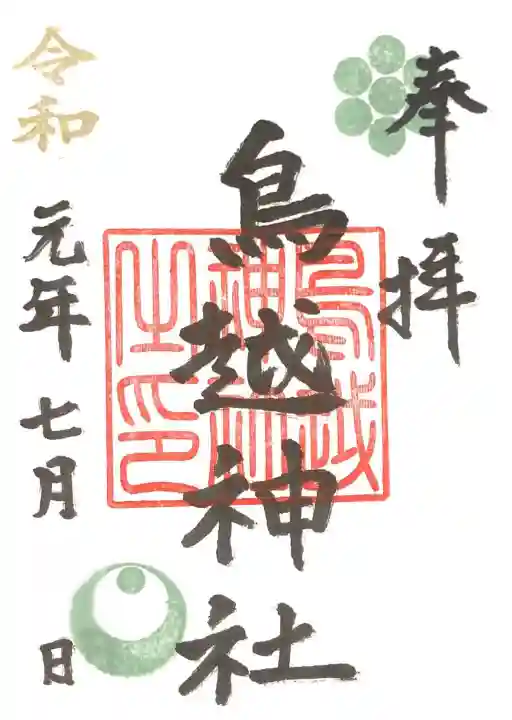 奉拝
鳥越神社
鳥越
神社
之印
令和元年七月 日